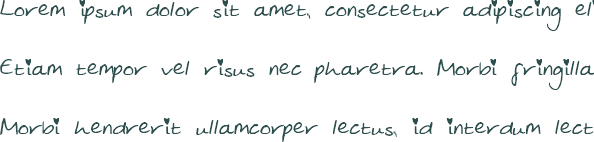 Lorem ipsum dolor sit amet, consectetur adipiscing el
Etiam tempor vel risus nec pharetra. Morbi fringilla
Morbi hendrerit ullamcorper lectus, id interdum lect